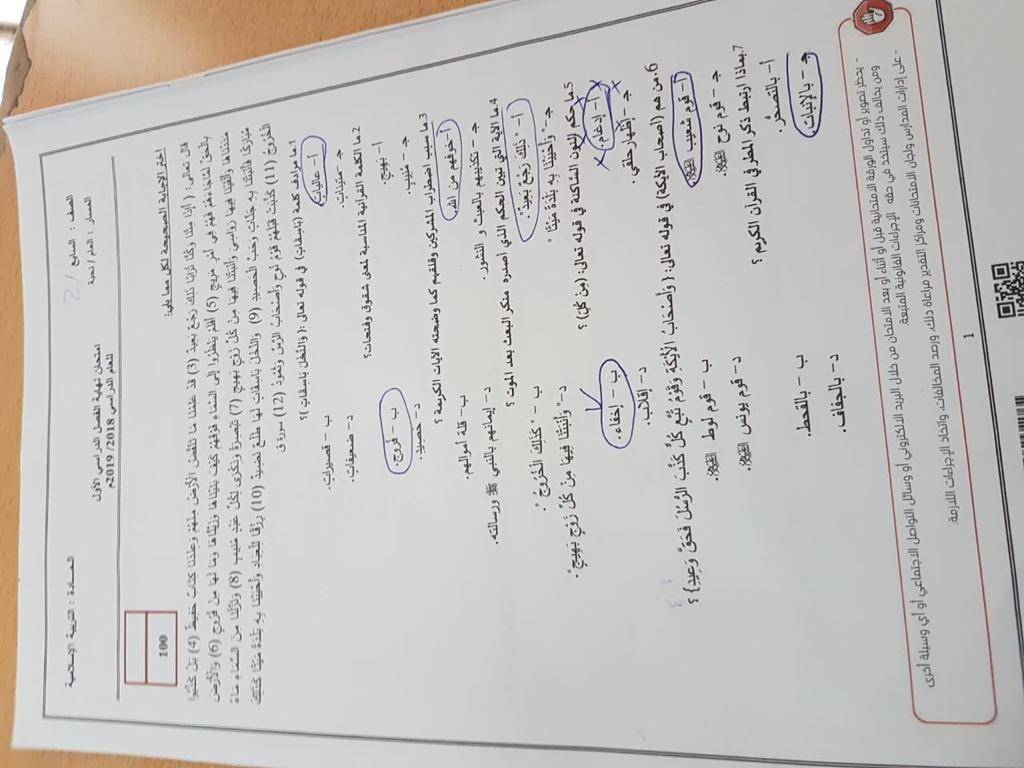 المـــادة : التربية الإسلامية
امتحان نهاية الفصل الدراسي الأول
للعام الدراسي 2018/ 2019م
الصف : السابع
المسار : العام / نخبة
100
اختر الإجابة الصحيحة لكل مما يلي:
قال تعالى: ( أَإِذَا مِتْنَا وَكُنَّا تُرَابًا ذَلِكَ رَجْعٌ بَعِيدٌ (3) قَدْ عَلِمْنَا مَا تَنْقُصُ الْأَرْضُ مِنْهُمْ وَعِنْدَنَا كِتَابٌ حَفِيظٌ (4) بَلْ كَذَّبُوا
بِالْحَقِّ لَمَّا جَاءَهُمْ فَهُمْ فِي أَمْرٍ مَرِيجٍ (5) أَفَلَمْ يَنْظُرُوا إِلَى السَّمَاءِ فَوْقَهُمْ كَيْفَ بَنَيْنَاهَا وَزَيَّنَّاهَا وَمَا لَهَا مِنْ فُرُوجٍ (6) وَالْأَرْضَ
مَدَدْنَاهَا وَأَلْقَيْنَا فِيهَا رَوَاسِيَ وَأَنْبَتْنَا فِيهَا مِنْ كُلِّ زَوْجٍ بَهِيجٍ (7) تَبْصِرَةً وَذِكْرَى لِكُلِّ عَبْدٍ مُنِيبٍ (8) وَنَزَّلْنَا مِنَ السَّمَاءِ مَاءً
مُبَارَكًا فَأَنْبَتْنَا بِهِ جَنَّاتٍ وَحَبَّ الْحَصِيدِ (9) وَالنَّخْلَ بَاسِقَاتٍ لَهَا طَلْعٌ نَضِيدٌ (10) رِزْقًا لِلْعِبَادِ وَأَحْيَيْنَا بِهِ بَلْدَةً مَيْتًا كَذَلِكَ
الْخُرُوجُ (11) كَذَّبَتْ قَبْلَهُمْ قَوْمُ نُوحٍ وَأَصْحَابُ الرَّسِّ وَثَمُودُ (12) سورة ق
1.ما مرادف كلمة (بَاسِقَاتٍ) في قوله تعالى :{ وَالنَّخْلَ بَاسِقَاتٍ }؟
أ – عاليات.
ب – قصيرات.
جـ – متينات.
د- ضعيفات.
2.ما الكلمة القرآنية المناسبة لمعنى شقوق وفتحات؟
أ – بَهِيجٍ.
ب – فُرُوجٍ.
جـ – مُنِيبٍ.
د – حصيدٍ.
3.ما سبب اضطراب المشركين وقلقهم كما وضحته الآيات الكريمة ؟
أ – خوفهم من الله.
ب – قلة أموالهم.
جـ – تكذيبهم بالبعث و النشور.
د – إيمانهم بالنبي ﷺ ورسالته.
4.ما الآية التي تبين الحكم الذي أصدره منكر البعث بعد الموت ؟
أ – " ذَلِكَ رَجْعٌ بَعِيدٌ".
ب – " كَذَلِكَ الْخُرُوجُ ".
جـ – " وَأَحْيَيْنَا بِهِ بَلْدَةً مَيْتًا ".
د- " وَأَنْبَتْنَا فِيهَا مِنْ كُلِّ زَوْجٍ بَهِيجٍ".
5.ما حكم (النون الساكنة في قوله تعالى: (مِن كُلِّ) ؟
أ – إدغام.
ب – إخفاء.
جـ – إظهار حلقي .
د- إقلاب.
6.من هم (أصحاب الأيكة) في قوله تعالى: { وَأَصْحَابُ الْأَيْكَةِ وَقَوْمُ تُبَّعٍ كُلٌّ كَذَّبَ الرُّسُلَ فَحَقَّ وَعِيدِ} ؟
أ – قوم شعيب
ب – قوم لوط
جـ – قوم نوح
د – قوم يونس
7.بماذا ارتبط ذكر المطر في القرآن الكريم ؟
أ – بالتصحُّر.
ب – بالقحط.
جـ – بالإنبات.
د – بالجفاف.
- يحظر تصوير أو تداول الورقة الامتحانية قبل أو أثناء أو بعد الامتحان من خلال البريد الإلكتروني أو وسائل التواصل الاجتماعي أو أي وسيلة أخرى
ومن يخالف ذلك ستتخذ في حقه الإجراءات القانونية المتبعة.
- على إدارات المدارس ولجان الامتحانات ومراكز التقدير مراعاة ذلك، ورصد المخالفات، واتخاذ الإجراءات اللازمة.
1